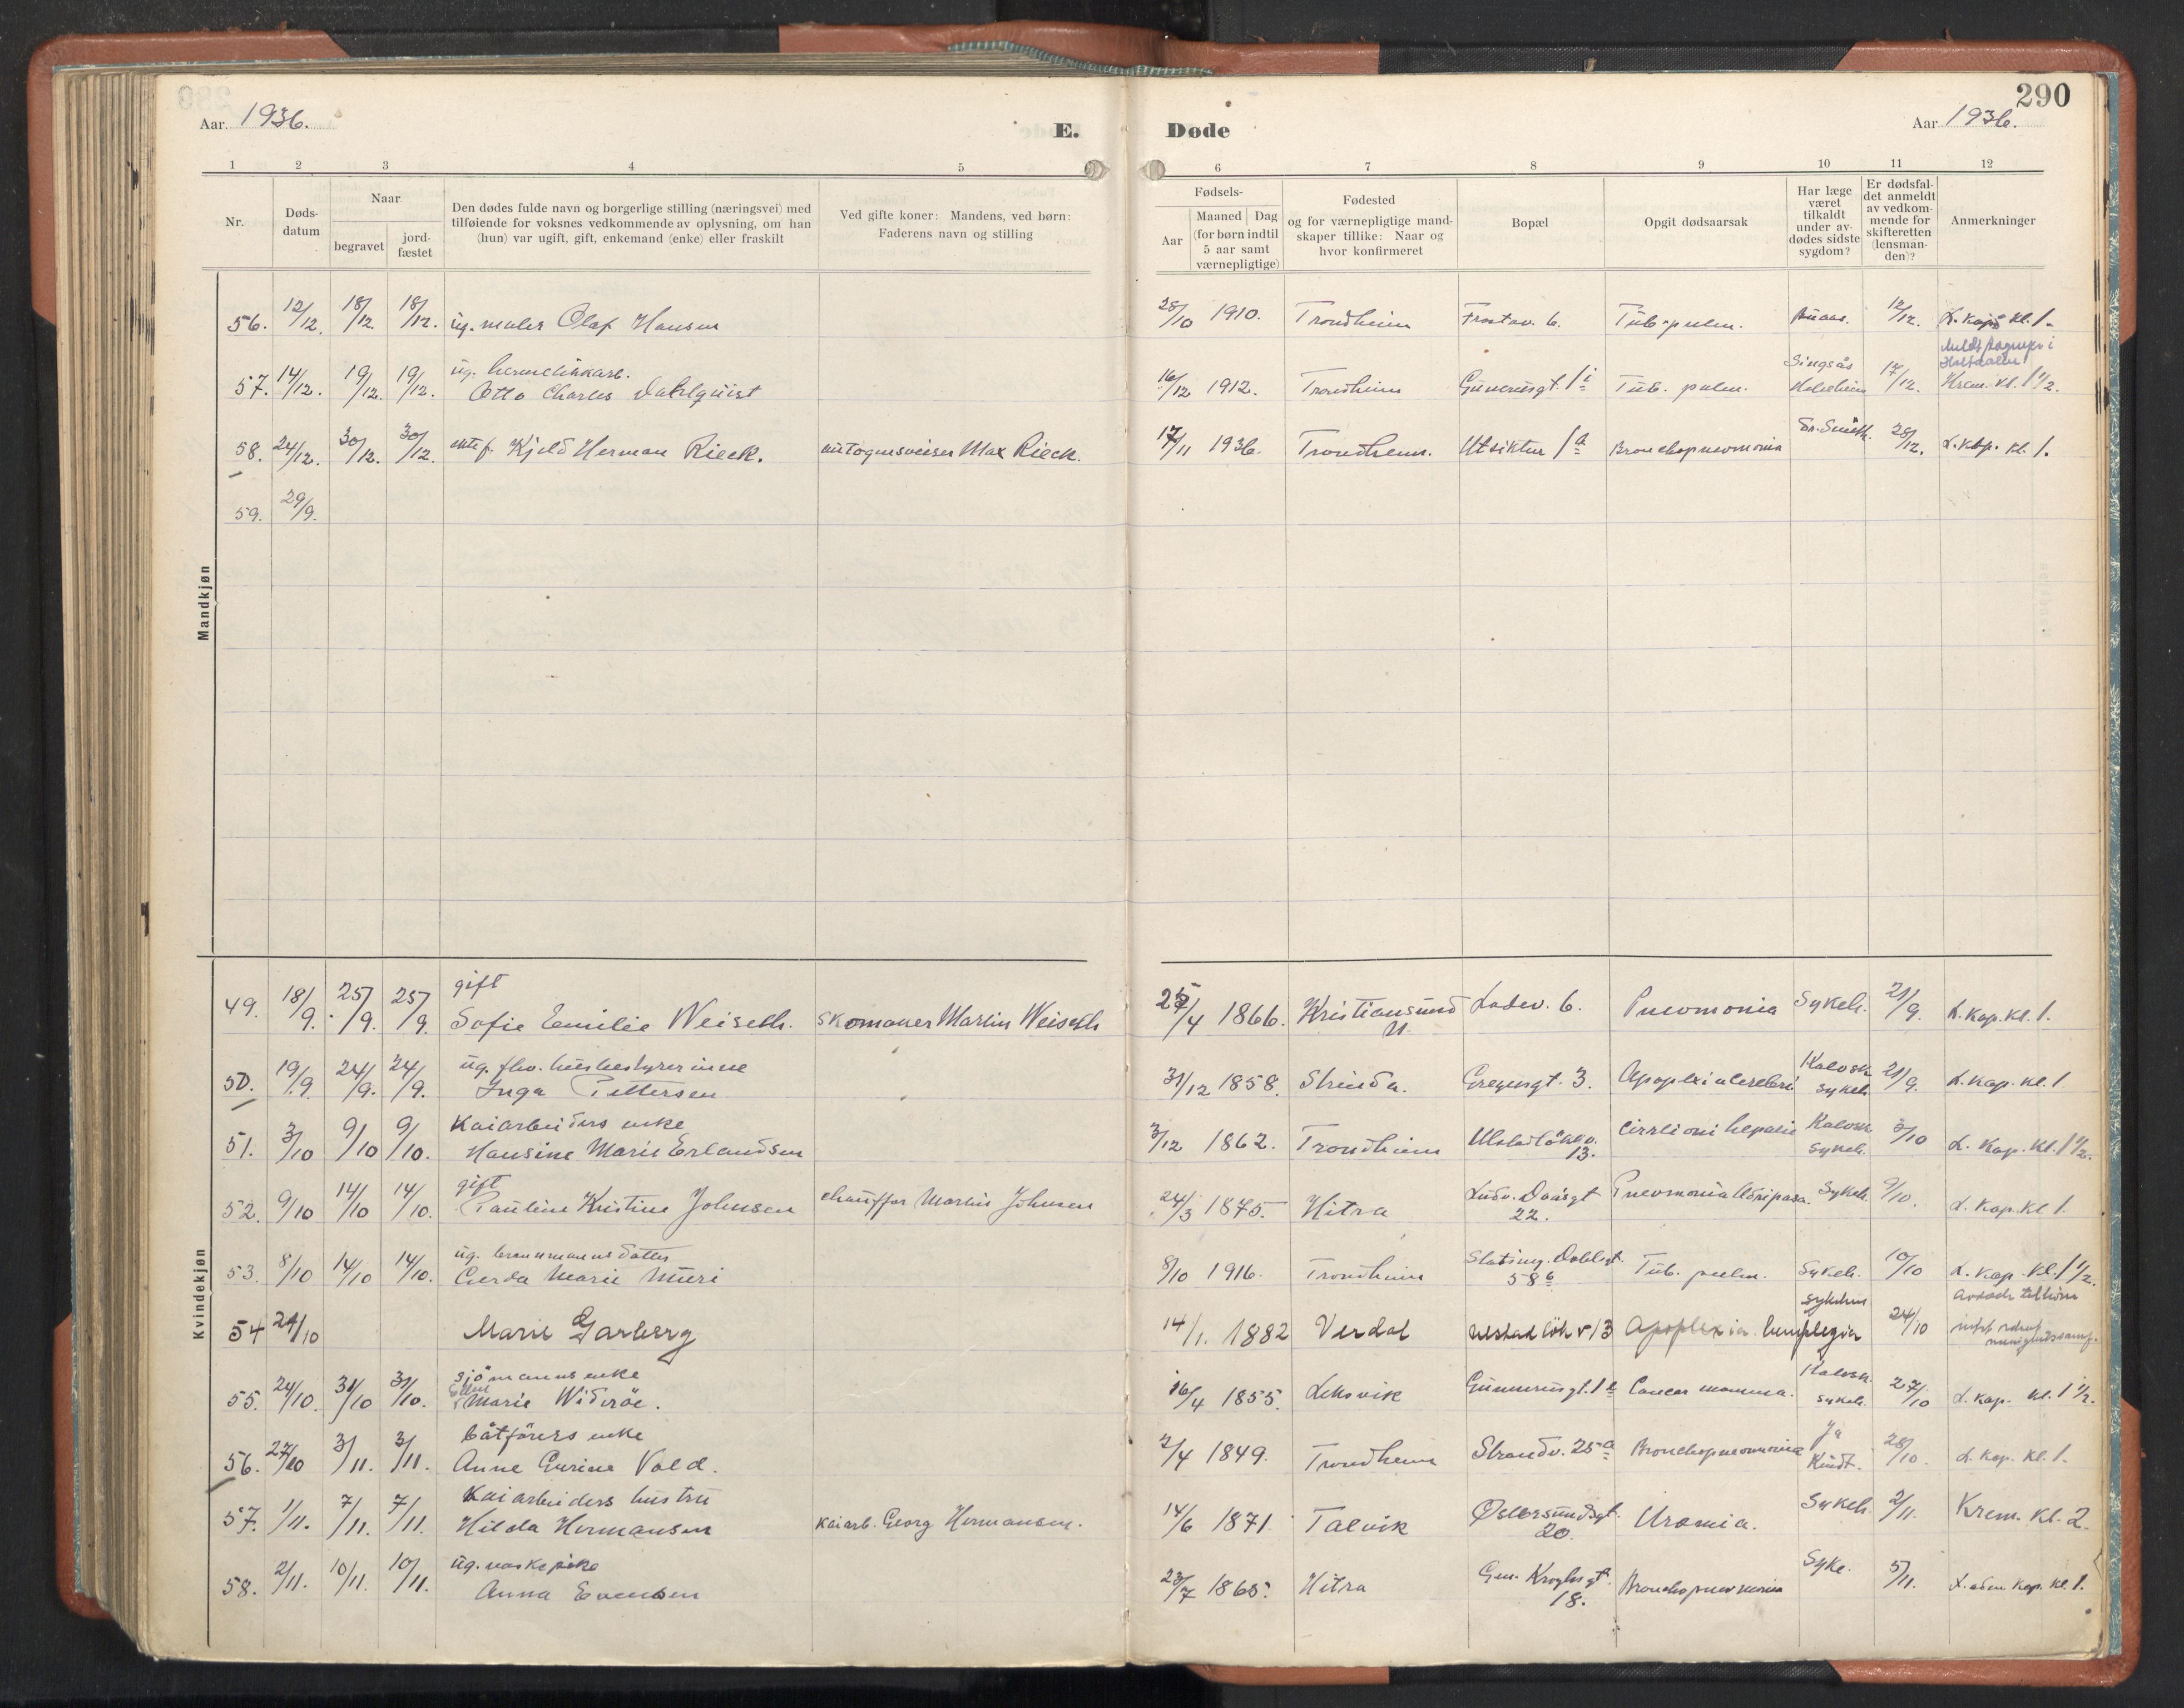 290
Aar 1936.
E. Døde
Aar 1936.
1 2 3 4 5 6 7 8 9 10 11 12
Nr.
Døds-
datum
Naar
begravet
jord-
fæstet
Den dødes fulde navn og borgerlige stilling (næringsvei) med
tilføiende for voksnes vedkommende av oplysning, om han
(hun) var ugift, gift, enkemand (enke) eller fraskilt
Ved gifte koner: Mandens, ved børn:
Faderens navn og stilling
Fødsels-
Aar
Maaned Dag
(for børn indtil
5 aar samt
værnepligtige)
Fødested
og for værnepligtige mand-
skaper tillike: Naar og
hvor konfirmeret
Bopæl
Opgit dødsaarsak
Har læge
været
tilkaldt
under av-
dødes sidste
sygdom?
Er dødsfal-
det anmeldt
av vedkom-
mende for
skifteretten
(lensman-
den)?
Anmerkninger
Mandkjøn
56. 12/12. 18/12. 18/12. ug. maler Olaf Hansen 28/10 1910. Trondheim Frostav. 6. Tub. pulm. 12/12. L. kap. kl. 1.
57. 14/12. 19/12. 19/12. ug.
Otto Charles Dahlquist 16/12 1912. Trondheim Gunnerusgt. 1 Tub. pulm. Singsås 17/12. Krem. kl. 1 1/2.
58. 24/12. 30/12. 30/12. Kjeld Herman Rieck. autogensveiser Max Rieck. 17/11 1936. Trondheim. Utsikten 1 a Bronchopneumonia Dr. Smith. 28/12. L. kap. kl. 1.
59. 29/9.
Kvindekjøn
49. 18/9. 25/9. 25/9. gift
Sofie Emilie Weiseth. skomaker Martin Weiseth 25/4 1866. Kristiansund N. Ladev. 6. Pneumonia Sykeh. 21/9. L. kap. kl. 1.
50. 19/9. 24/9. 24/9. ug. fhv. husbestyrerinne
Inga Pettersen 31/12 1858. Strinda. Gregusgt. 3. Apoplexia cerebri Kalvsk. sykeh. 21/9. L. kap. kl. 1
51. 3/10 9/10 9/10. Kaiarbeiders enke
Hansine Marie Erlandsen 3/12 1862. Trondheim 13. Kalvsk sykeh. 5/10 L. kap. kl. 1 1/2.
52. 9/10 14/10 14/10. gift
Pauline Kristine Johnsen chauffør Martin Johnsen 24/3 1875. Hitra Ludv. Daásgt 22. Pneumonia Sykeh. 9/10. L. kap. kl. 1.
53. 8/10 14/10 14/10. ug. brannmanns datter
Gerda Marie Muri 8/10 1916. Trondheim Statsing. Dahlsgt. 58 b Tub. pulm. Sykeh. 10/10 L. kap. kl. 1 1/2.
54 21/10 Marie Garberg 14/1. 1882 Verdal 13 Apoplexia hemiplegia sykehus 24/10
55. 24/10. 31/10 31/10. sjømanns enke
Ellen Marie Widerøe. 16/4 1855. Leksvik Gunnerusgt. 1 Cancer mamma. Kalvsk. sykeh. 27/10 L. kap. kl. 1 1/2.
56. 27/10 3/11. 3/11. båtførers enke
Anne Gurine Vold. 2/4 1849. Trondheim Strandv. 25 a Bronchopneumonia Ja 28/10. L. kap. kl. 1.
57. 1/11. 7/11. 7/11. Kaiarbeiders hustru
Hilda Hermansen kaiarb. Georg Hermansen. 14/6 1871. Talvik Østersundsgt. 20. Uræmia. Sykeh. 2/11. Krem. kl. 2.
58. 2/11. 10/11. 10/11. ug. vaskepike
Anna Evensen 23/7 1865. Hitra Gen. Kroghsgt. 18. Bronchopneumonia Syke. 5/11. kap. kl. 1.